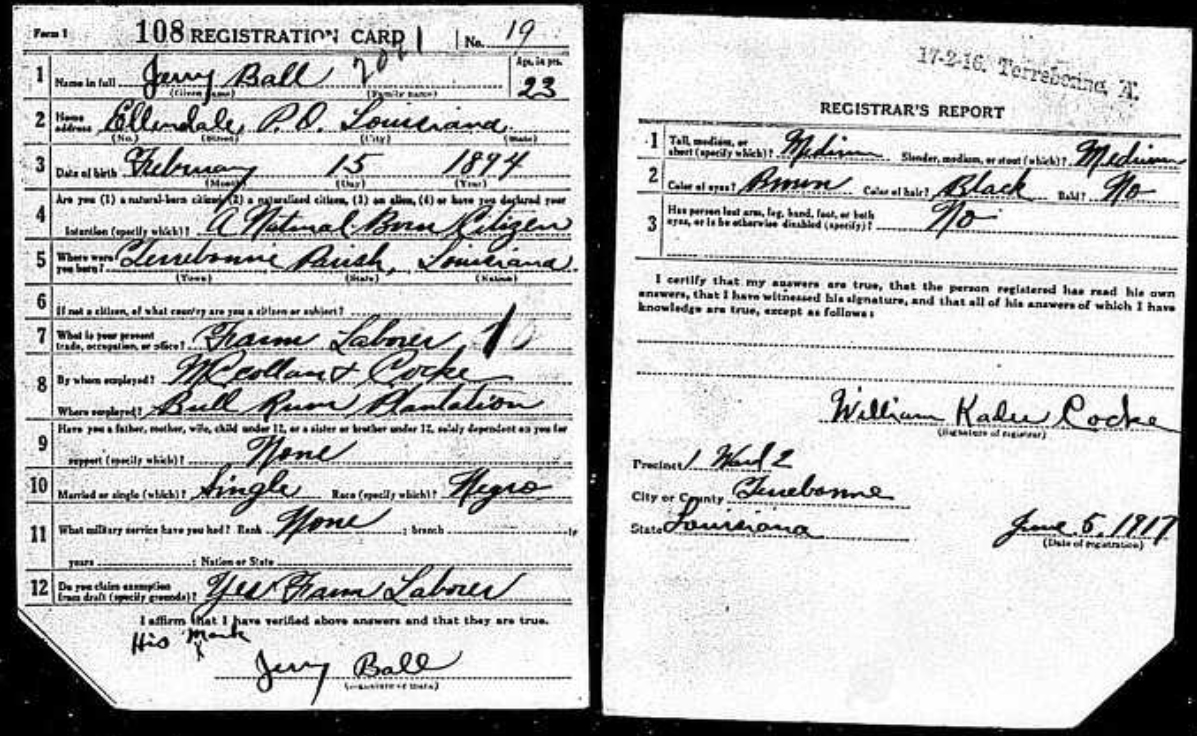 Form 1 108 REGISTRATION CARD No. 19
1 Name in full Jerry Ball Age, in yrs. 23
(Given name) (Family name)
2 Home address Ellendale, P.O. Louisiana
(No.) (Street) (City) (State)
3 Date of birth February 15 1894
(Month) (Day) (Year)
4 Are you (1) a natural-born citizen, (2) a naturalized citizen, (3) an alien, (4) or have you declared your
intention (specify which)? A Natural Born Citizen
5 Where were you born? Terrebonne Parish, Louisiana
(Town) (State) (Nation)
6 If not a citizen, of what country are you a citizen or subject?
7 What is your present trade, occupation, or office? Fram Laborer
8 By whom employed? McCollam & Cocke
Where employed? Bull Run Plantation
9 Have you a father, mother, wife, child under 12, or a sister or brother under 12, solely dependent on you for
support (specify which)? None
10 Married or single (which)? Single Race (specify which)? Negro
11 What military service have you had? Rank None ; branch
years ; Nation or State
12 Do you claim exemption from draft (specify grounds)? Yes Fram Laborer
I affirm that I have verified above answers and that they are true.
His Mark
X
Jerry Ball
17-2-16. Terrebonne, A.
REGISTRAR'S REPORT
1 Tall, medium, or short (specify which)? Medium Slender, medium, or stout (which)? Medium
2 Color of eyes? Brown Color of hair? Black Bald? No
3 Has person lost arm, leg, hand, foot, or both eyes, or is he otherwise disabled (specify)? No
I certify that my answers are true, that the person registered has read his own
answers, that I have witnessed his signature, and that all of his answers of which I have
knowledge are true, except as follows:
William Cocke
(Signature of registrar)
Precinct 1 Ward 2
City or County Terrebonne
State Louisiana June 5, 1917
(Date of registration)